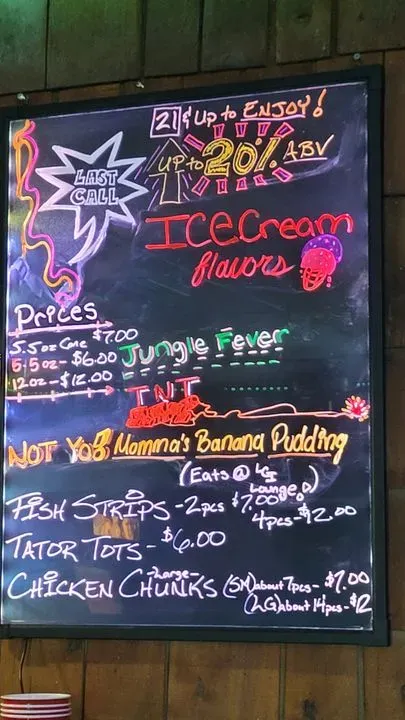 21 & Up to ENJOY!
LAST CALL
UP to 20% ABV
ICECream
flavors
Prices
5.5oz Cone $7.00
5.5oz - $6.00
12oz - $12.00
Jungle Fever
TNT
NOT YO Momma's Banana Pudding
(Eats @ Lounge)
FISH STRIPS - 2pcs $7.00
4pcs - $12.00
TATOR TOTS - $6.00
-Large-
CHICKEN CHUNKS (SM) about 7pcs - $7.00
(LG) about 14pcs - $12